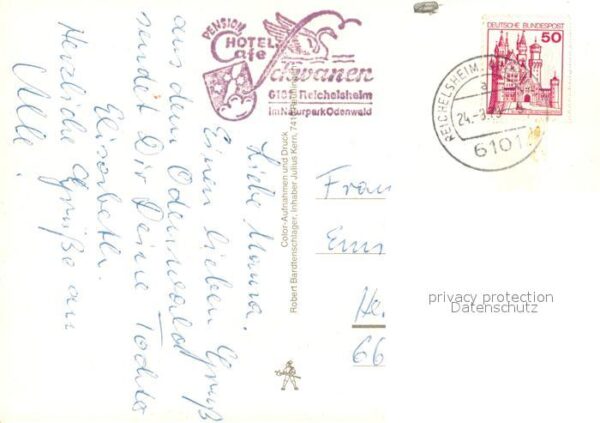 PENSION
HOTEL
Cafe
Schwanen
6101 Reichelsheim
im Naturpark Odenwald
DEUTSCHE BUNDESPOST
50
REICHELSHEIM
a
24.-3.
6101
Liebe Mama.
Einen lieben Gruß
aus dem Odenwald
sendet Dir Deine Tochter
Elisabeth.
Herzliche Grüße an
Alle!
Color-Aufnahmen und Druck
Robert Bardtenschlager, Inhaber Julius Kern, 741
Frau
Em
He
66
privacy protection
Datenschutz